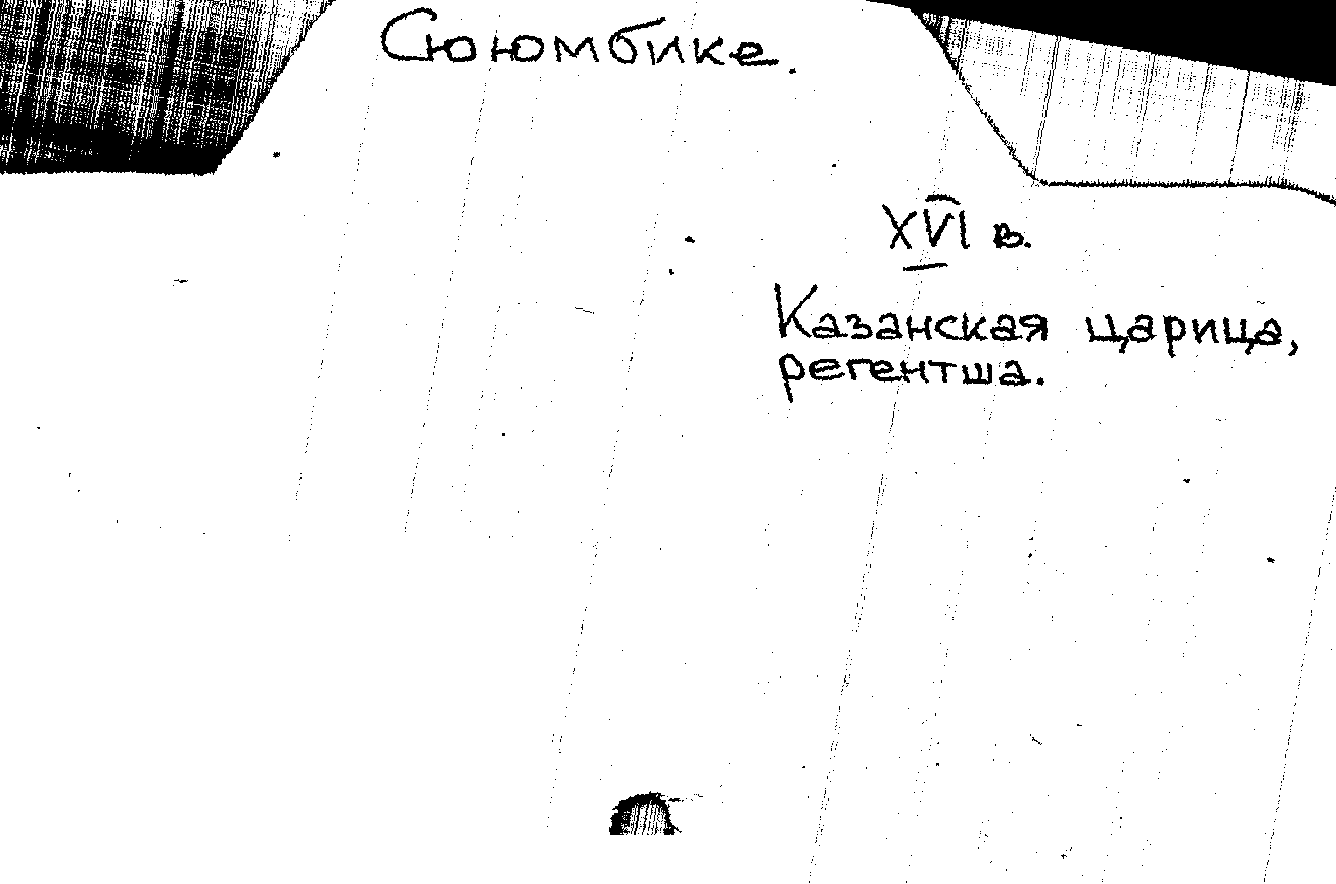 Сююмбике.
XVI в.
Казанская царица,
регентша.